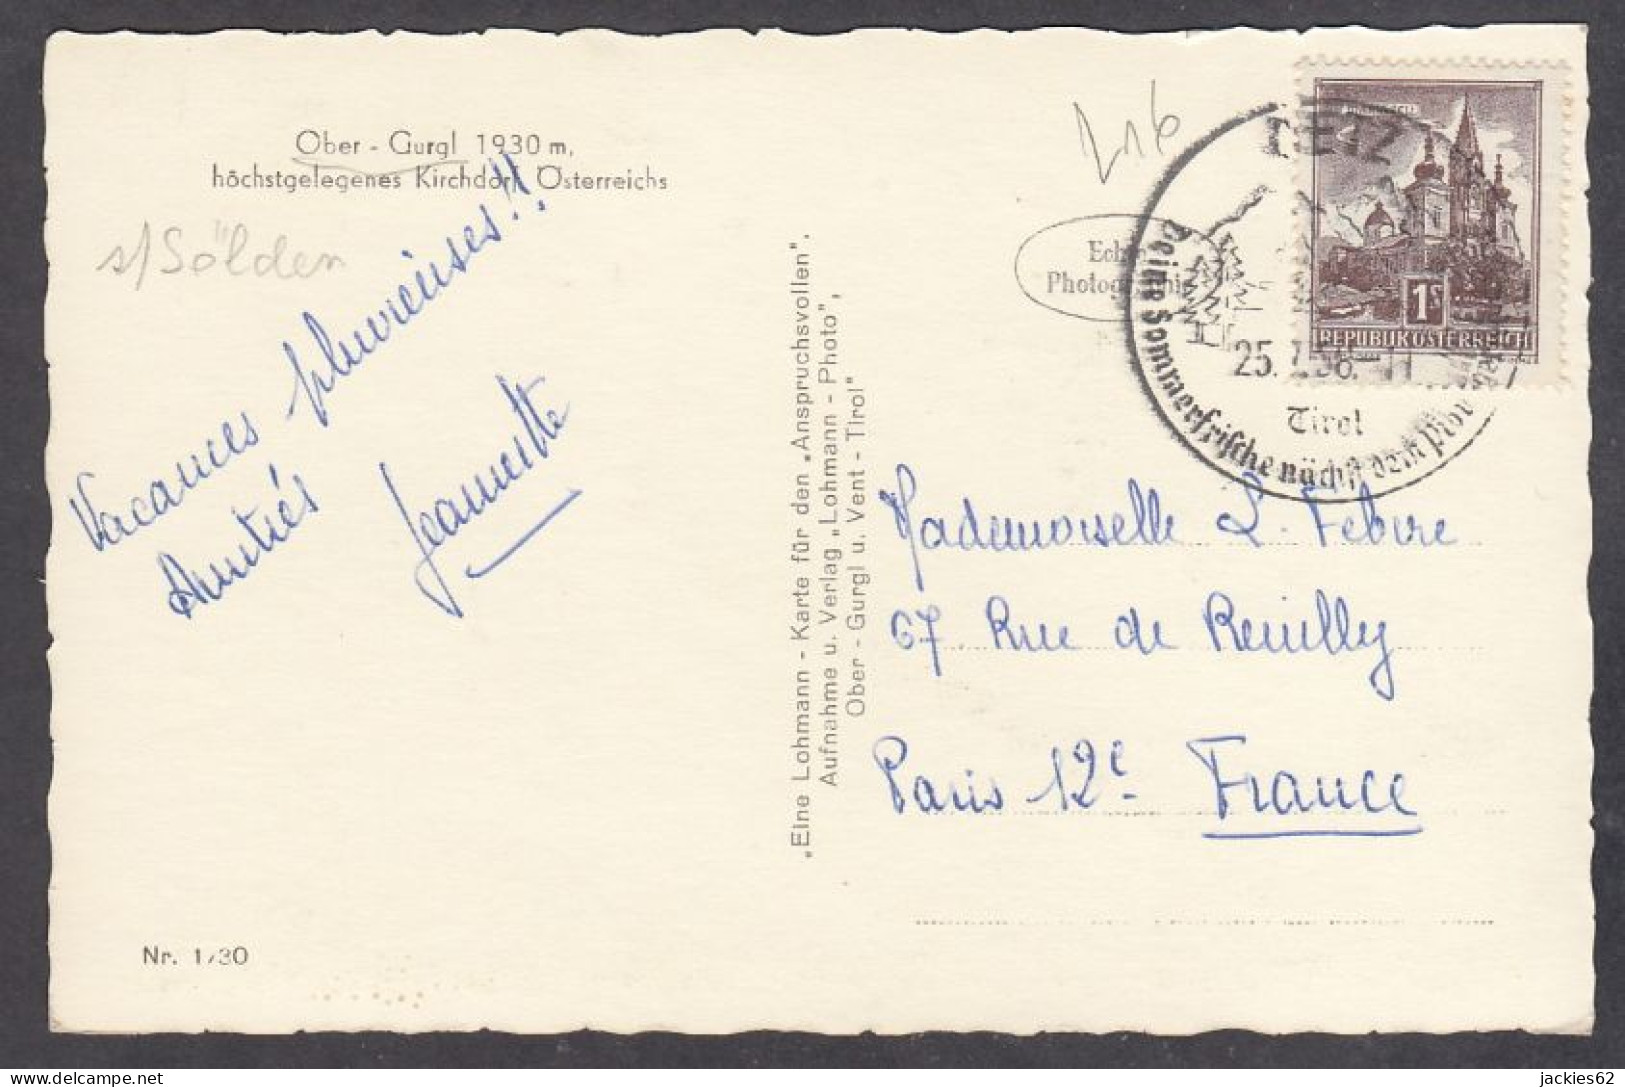 Ober - Gurgl 1930 m,
höchstgelegenes Kirchdorf Österreichs
s/Sölden
Vacances pluvieuses!!
Amitiés
Jeannette
Nr. 1/30
„Eine Lohmann - Karte für den „Anspruchsvollen".
Aufnahme u. Verlag „Lohmann - Photo",
Ober - Gurgl u. Vent - Tirol"
216
Echte
Photographie
Deine Sommerfrische nächst dem
25.
58. 11
Tirol
1S
REPUBLIK ÖSTERREICH
Mademoiselle L. Febvre
67 Rue de Reuilly
Paris 12e France
jackies62